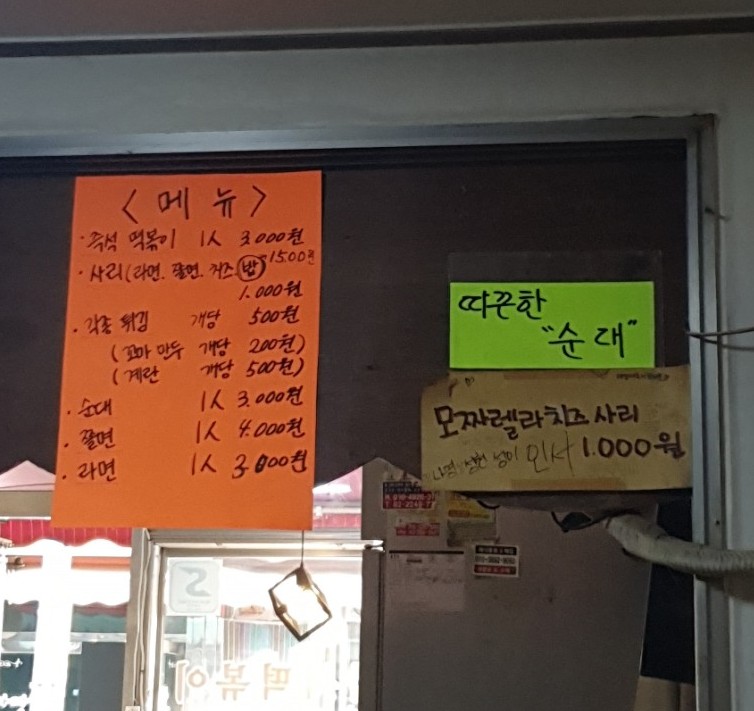 <메뉴>
· 즉석 떡볶이 1人 3.000원
· 사리(라면. 쫄면. 치즈. 밥 1500원
1.000원
· 각종 튀김 개당 500원
(꼬마 만두 개당 200원)
(계란 개당 500원)
· 순대 1人 3.000원
· 쫄면 1人 4.000원
· 라면 1人 3.000원
따끈한
"순대"
모짜렐라치즈 사리
1.000원
떡볶이